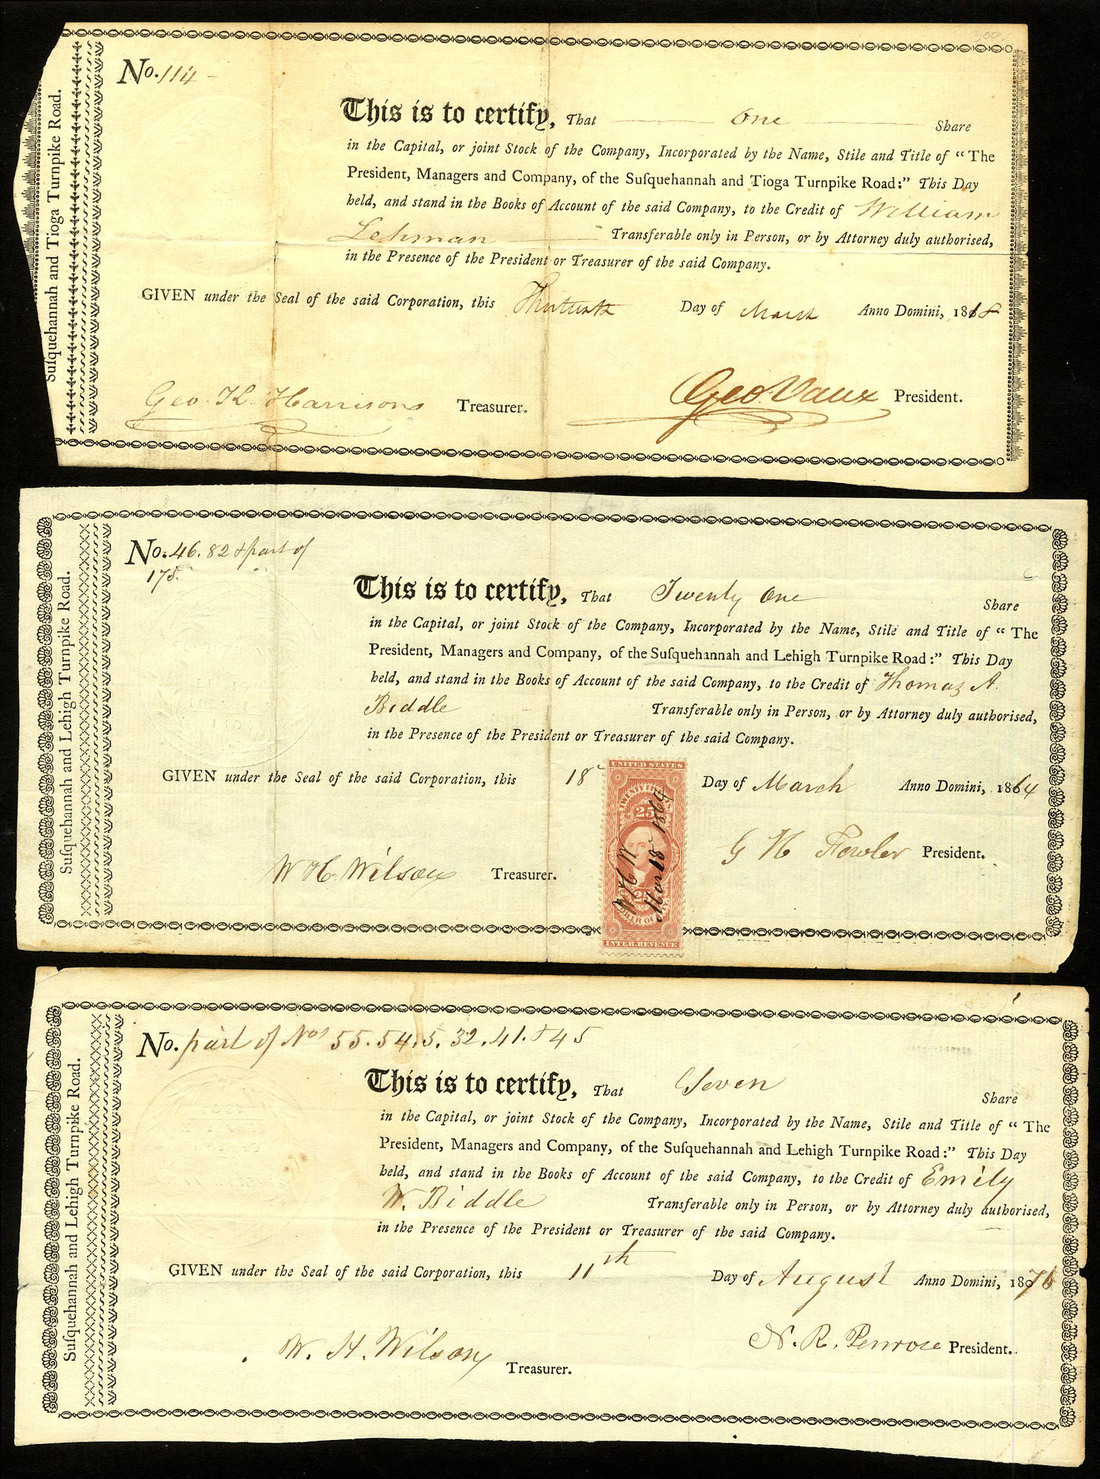 Susquehannah and Tioga Turnpike Road.
No. 114
This is to certify, That One Share
in the Capital, or joint Stock of the Company, Incorporated by the Name, Stile and Title of "The
President, Managers and Company, of the Suſquehannah and Tioga Turnpike Road:" This Day
held, and stand in the Books of Account of the said Company, to the Credit of William
Lehman Transferable only in Person, or by Attorney duly authorised,
in the Presence of the President or Treasurer of the said Company.
GIVEN under the Seal of the said Corporation, this Day of March Anno Domini, 1818
Geo. H. Harrison Treasurer. Geo Vaux President.
Suſquehannah and Lehigh Turnpike Road.
No. 46. 82 & part of
175.
This is to certify, That Twenty One Share
in the Capital, or joint Stock of the Company, Incorporated by the Name, Stile and Title of "The
President, Managers and Company, of the Suſquehannah and Lehigh Turnpike Road:" This Day
held, and stand in the Books of Account of the said Company, to the Credit of Thomas A.
Biddle Transferable only in Person, or by Attorney duly authorised,
in the Presence of the President or Treasurer of the said Company.
GIVEN under the Seal of the said Corporation, this 18 Day of March Anno Domini, 1864
UNITED STATES
25
W H W
Mar 18 1864
25
INTER. REVENUE
W H Wilson Treasurer. G H Fowler President.
Suſquehannah and Lehigh Turnpike Road.
No. part of Nos 55. 54. 5. 32. 41. & 45
This is to certify, That Seven Share
in the Capital, or joint Stock of the Company, Incorporated by the Name, Stile and Title of "The
President, Managers and Company, of the Suſquehannah and Lehigh Turnpike Road:" This Day
held, and stand in the Books of Account of the said Company, to the Credit of Emily
W. Biddle Transferable only in Person, or by Attorney duly authorised,
in the Presence of the President or Treasurer of the said Company.
GIVEN under the Seal of the said Corporation, this 11th Day of August Anno Domini, 1876
W. H. Wilson Treasurer. N. R. Penrose President.